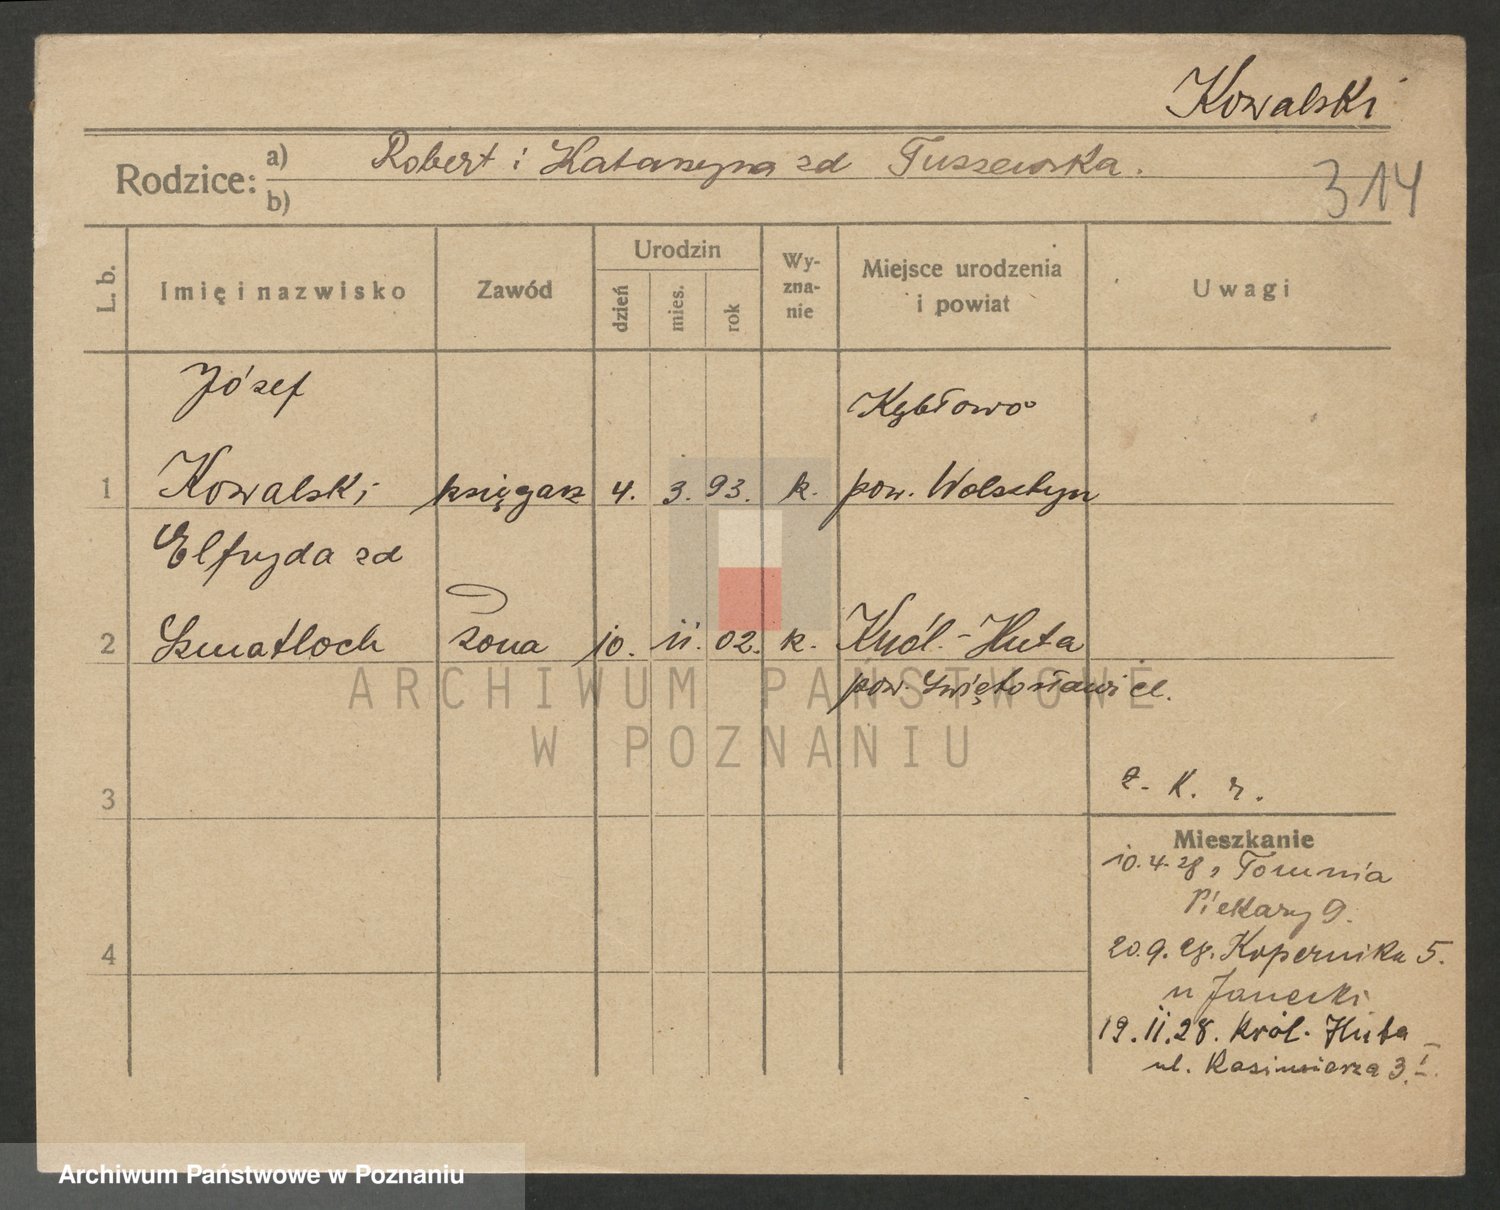 Kowalski
Rodzice: a) Robert i Katarzyna zd Tuszewska.
b)
314
L. b. Imię i nazwisko Zawód Urodzin dzień mies. rok Wy-zna-nie Miejsce urodzenia i powiat Uwagi
Józef Kębłowo
1 Kowalski księgarz 4. 3. 93. k. pow. Wolsztyn
Elfryda zd
2 Szmatloch żona 10. 11. 02. k. Król.-Huta
pow. Świętosławice.
ARCHIWUM PAŃSTWOWE
W POZNANIU
3 z. k. r.
Mieszkanie
10.4.28 z Torunia
Piekary 9.
4 20.9.28. Kopernika 5.
u Janecki
19.11.28. Król. Huta
ul. Kazimierza 3 I.
Archiwum Państwowe w Poznaniu